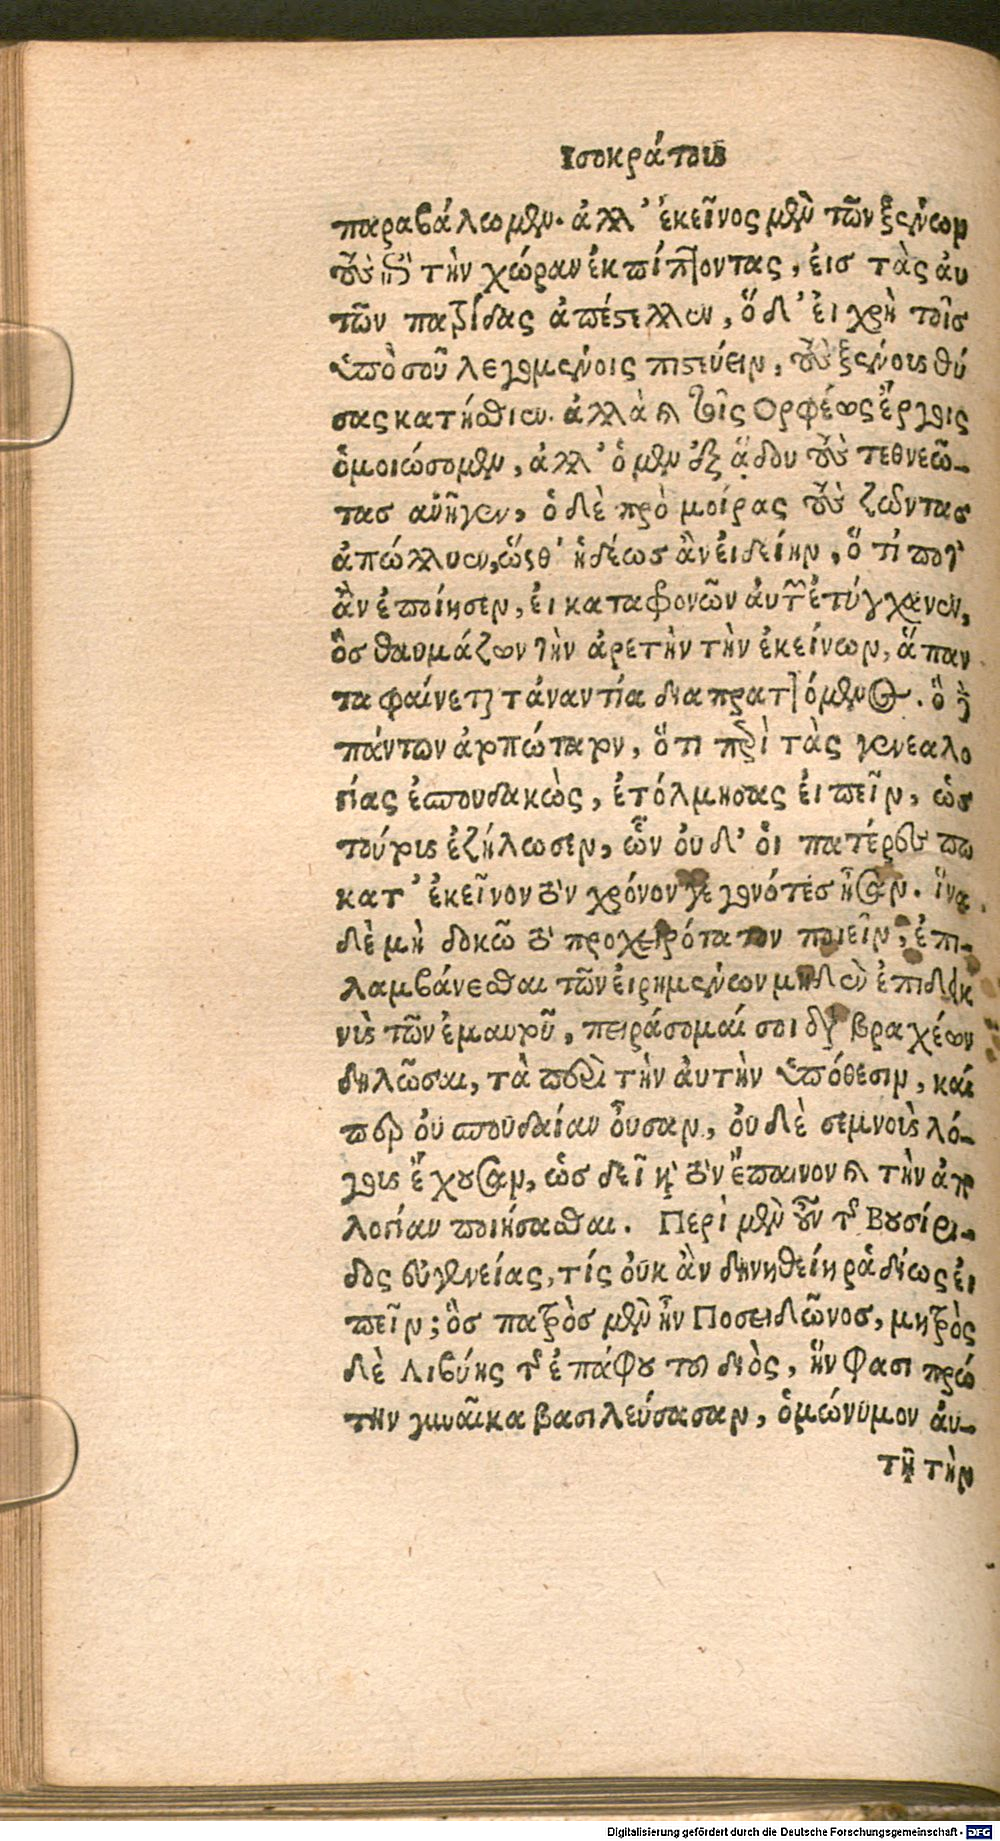 Ισοκράτους
παραβάλωμεν. ἀλλ’ ἐκεῖνος μὲν τῶν ξένων
τοὺς ἐπὶ τὴν χώραν ἐκπίπτοντας, εἰσ τὰς ἀυ
τῶν πατρίδας ἀπέστελλεν, ὅ δ’ ἐι χρὴ τοῖσ
ὑπὸ σοῦ λεγομένοις πιστεύειν, τοὺς ξένους θύ
σας κατήσθιεν. ἀλλὰ καὶ τοῖς Ορφέως ἔργοις
ὁμοιώσομεν, ἀλλ’ ὁ μὲν ἐξ ᾅδου τοὺς τεθνεῶ-
τασ ἀνῆγεν, ὁ δὲ πρὸ μοίρας τοὺς ζῶντασ
ἀπώλλυεν, ὥσθ’ ἡδέωσ ἂν ἐιδείην, ὅ τί ποτ’
ἂν ἐποίησεν, ἐι καταφρονῶν ἀυτῶν ἐτύγχανεν,
ὃσ θαυμάζων τὴν ἀρετὴν τὴν ἐκείνων, ἅπαν
τα φαίνεται τἀναντία διαπραττόμενος. ὃ δὲ
πάντων ἀτοπώτατον, ὅτι περὶ τὰς γενεαλο
γίας ἐσπουδακὼς, ἐτόλμησας ἐιπεῖν, ὡσ
τούτους ἐζήλωσεν, ὧν ὀυδ’ ὁι πατέρες πω
κατ’ ἐκεῖνον τὸν χρόνον γεγονότεσ ἦσαν. ἵνα
δὲ μὴ δοκῶ τὸ προχειρότατον ποιεῖν, ἐπι-
λαμβάνεσθαι τῶν ἐιρημένων μηδὲν ἐπιδεικ
νὺς τῶν ἐμαυτοῦ, πειράσομαί σοι διὰ βραχέων
δηλῶσαι, τὰ περὶ τὴν ἀυτὴν ὑπόθεσιν, καί
περ ὀυ σπουδαίαν ὖσαν, ὀυδὲ σεμνοὺς λό-
γους ἔχουσαν, ὡσ δεῖ καὶ τὸν ἔπαινον καὶ τὴν ἀπο
λογίαν ποιήσασθαι. Περὶ μὲν οὖν τῆς Βουσίρι-
δος εὐγενείας, τίς ὀυκ ἂν δυνηθείη ῥᾳδίως ἐι
πεῖν; ὃς πατρὸσ μὲν ἦν Ποσειδῶνοσ, μητρὸς
δὲ Λιβύης τῆς ἐπάφου τοῦ διὸς, ἥν φασι πρώ
την γυναῖκα βασιλεύσασαν, ὁμώνυμον ἀυ-
τῇ τὴν